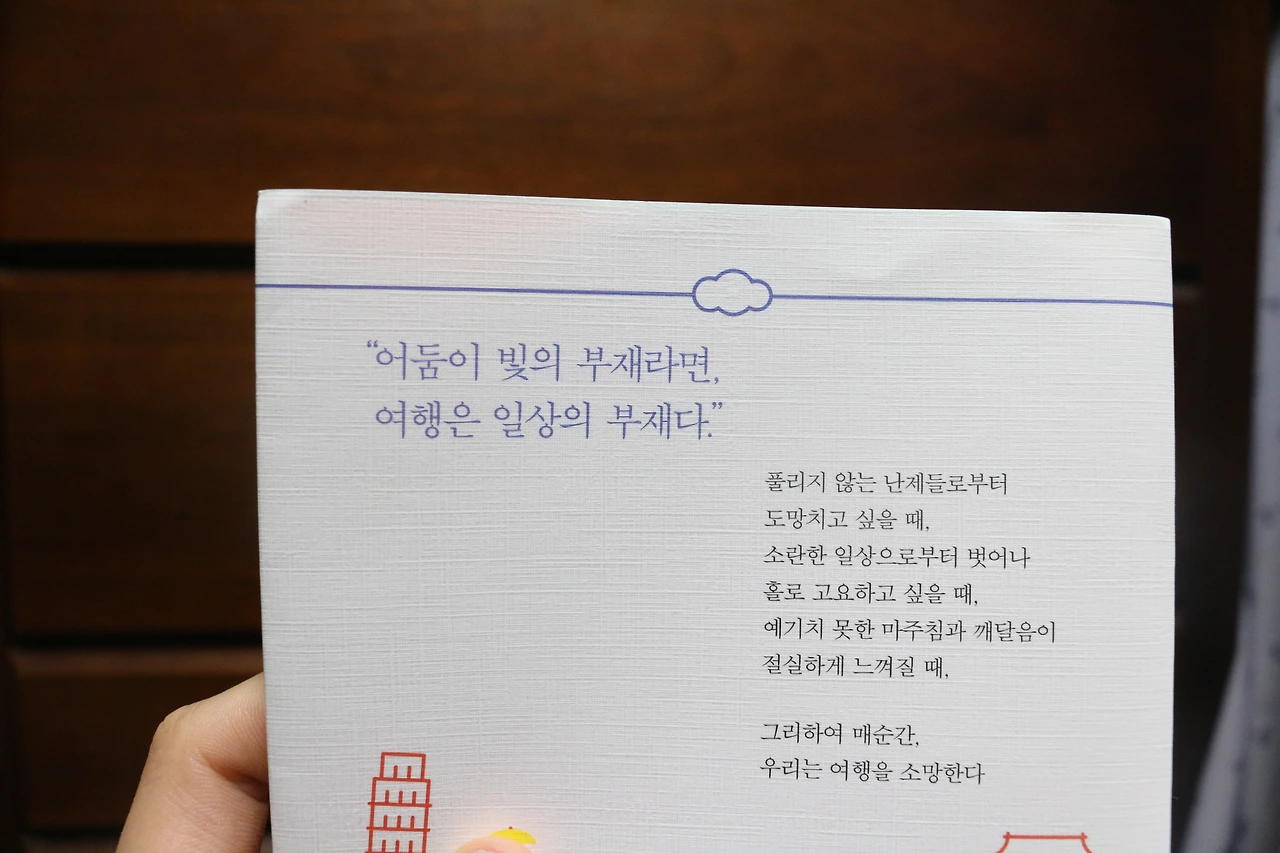 “어둠이 빛의 부재라면,
여행은 일상의 부재다.”
풀리지 않는 난제들로부터
도망치고 싶을 때,
소란한 일상으로부터 벗어나
홀로 고요하고 싶을 때,
예기치 못한 마주침과 깨달음이
절실하게 느껴질 때,
그리하여 매순간,
우리는 여행을 소망한다